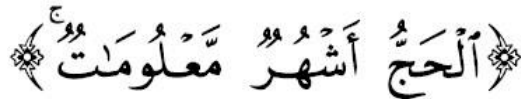 ﴿ٱلْحَجُّ أَشْهُرٌ مَّعْلُومَٰتٌ ۚ﴾